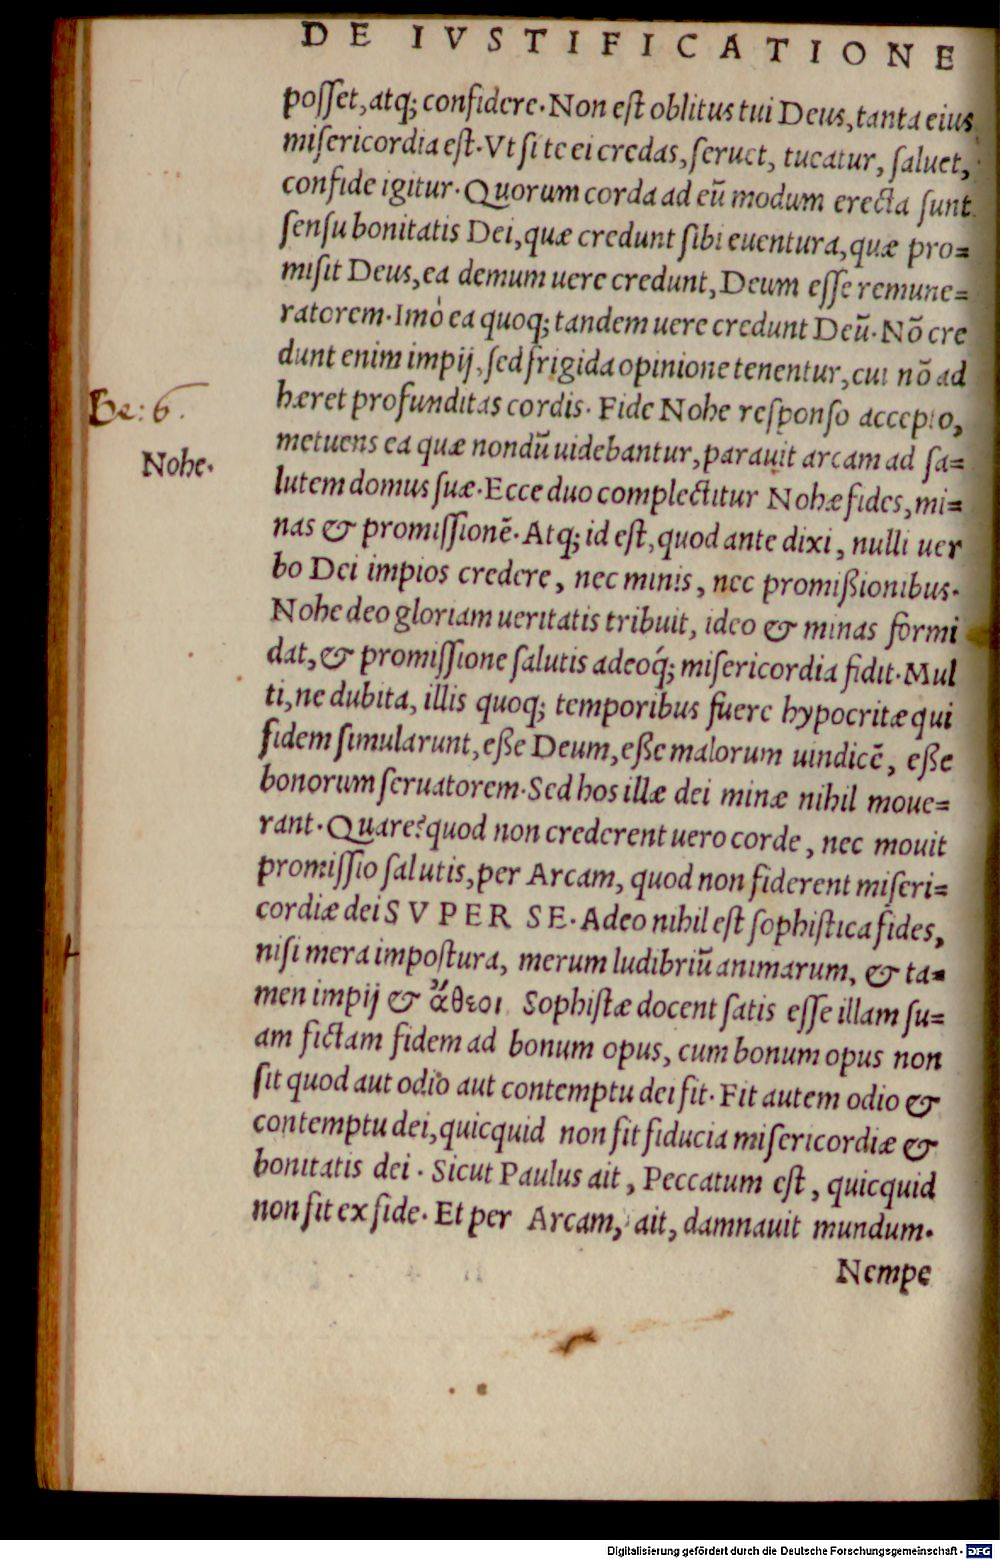 DE IVSTIFICATIONE
posſet, atq; confidere. Non eſt oblitus tui Deus, tanta eius
miſericordia eſt. Vt ſi te ei credas, ſeruet, tueatur, ſaluet,
confide igitur. Quorum corda ad eū modum erecta ſunt
ſenſu bonitatis Dei, quæ credunt ſibi euentura, quæ pro=
miſit Deus, ea demum uere credunt, Deum eſſe remune=
ratorem. Imò ea quoq; tandem uere credunt Deū. Nō cre
dunt enim impij, ſed frigida opinione tenentur, cui nō ad
hæret profunditas cordis. Fide Nohe reſponſo accepto,
Ge: 6.
metuens ea quæ nondū uidebantur, parauit arcam ad ſa=
Nohe.
lutem domus ſuæ. Ecce duo complectitur Nohæ fides, mi=
nas & promiſſionē. Atq; id eſt, quod ante dixi, nulli uer
bo Dei impios credere, nec minis, nec promißionibus.
Nohe deo gloriam ueritatis tribuit, ideo & minas formi
dat, & promiſſione ſalutis adeoq́; miſericordia fidit. Mul
ti, ne dubita, illis quoq; temporibus fuere hypocritæ qui
fidem ſimularunt, eße Deum, eße malorum uindicē, eße
bonorum ſeruatorem. Sed hos illæ dei minæ nihil moue=
rant. Quare? quod non crederent uero corde, nec mouit
promiſſio ſalutis, per Arcam, quod non fiderent miſeri=
cordiæ dei SVPER SE. Adeo nihil eſt ſophiſtica fides,
niſi mera impoſtura, merum ludibriū animarum, & ta=
men impij & ἄθεοι Sophiſtæ docent ſatis eſſe illam ſu=
am fictam fidem ad bonum opus, cum bonum opus non
ſit quod aut odio aut contemptu dei ſit. Fit autem odio &
contemptu dei, quicquid non fit fiducia miſericordiæ &
bonitatis dei. Sicut Paulus ait, Peccatum eſt, quicquid
non fit ex fide. Et per Arcam, ait, damnauit mundum.
Nempe
Digitalisierung gefördert durch die Deutsche Forschungsgemeinschaft - DFG